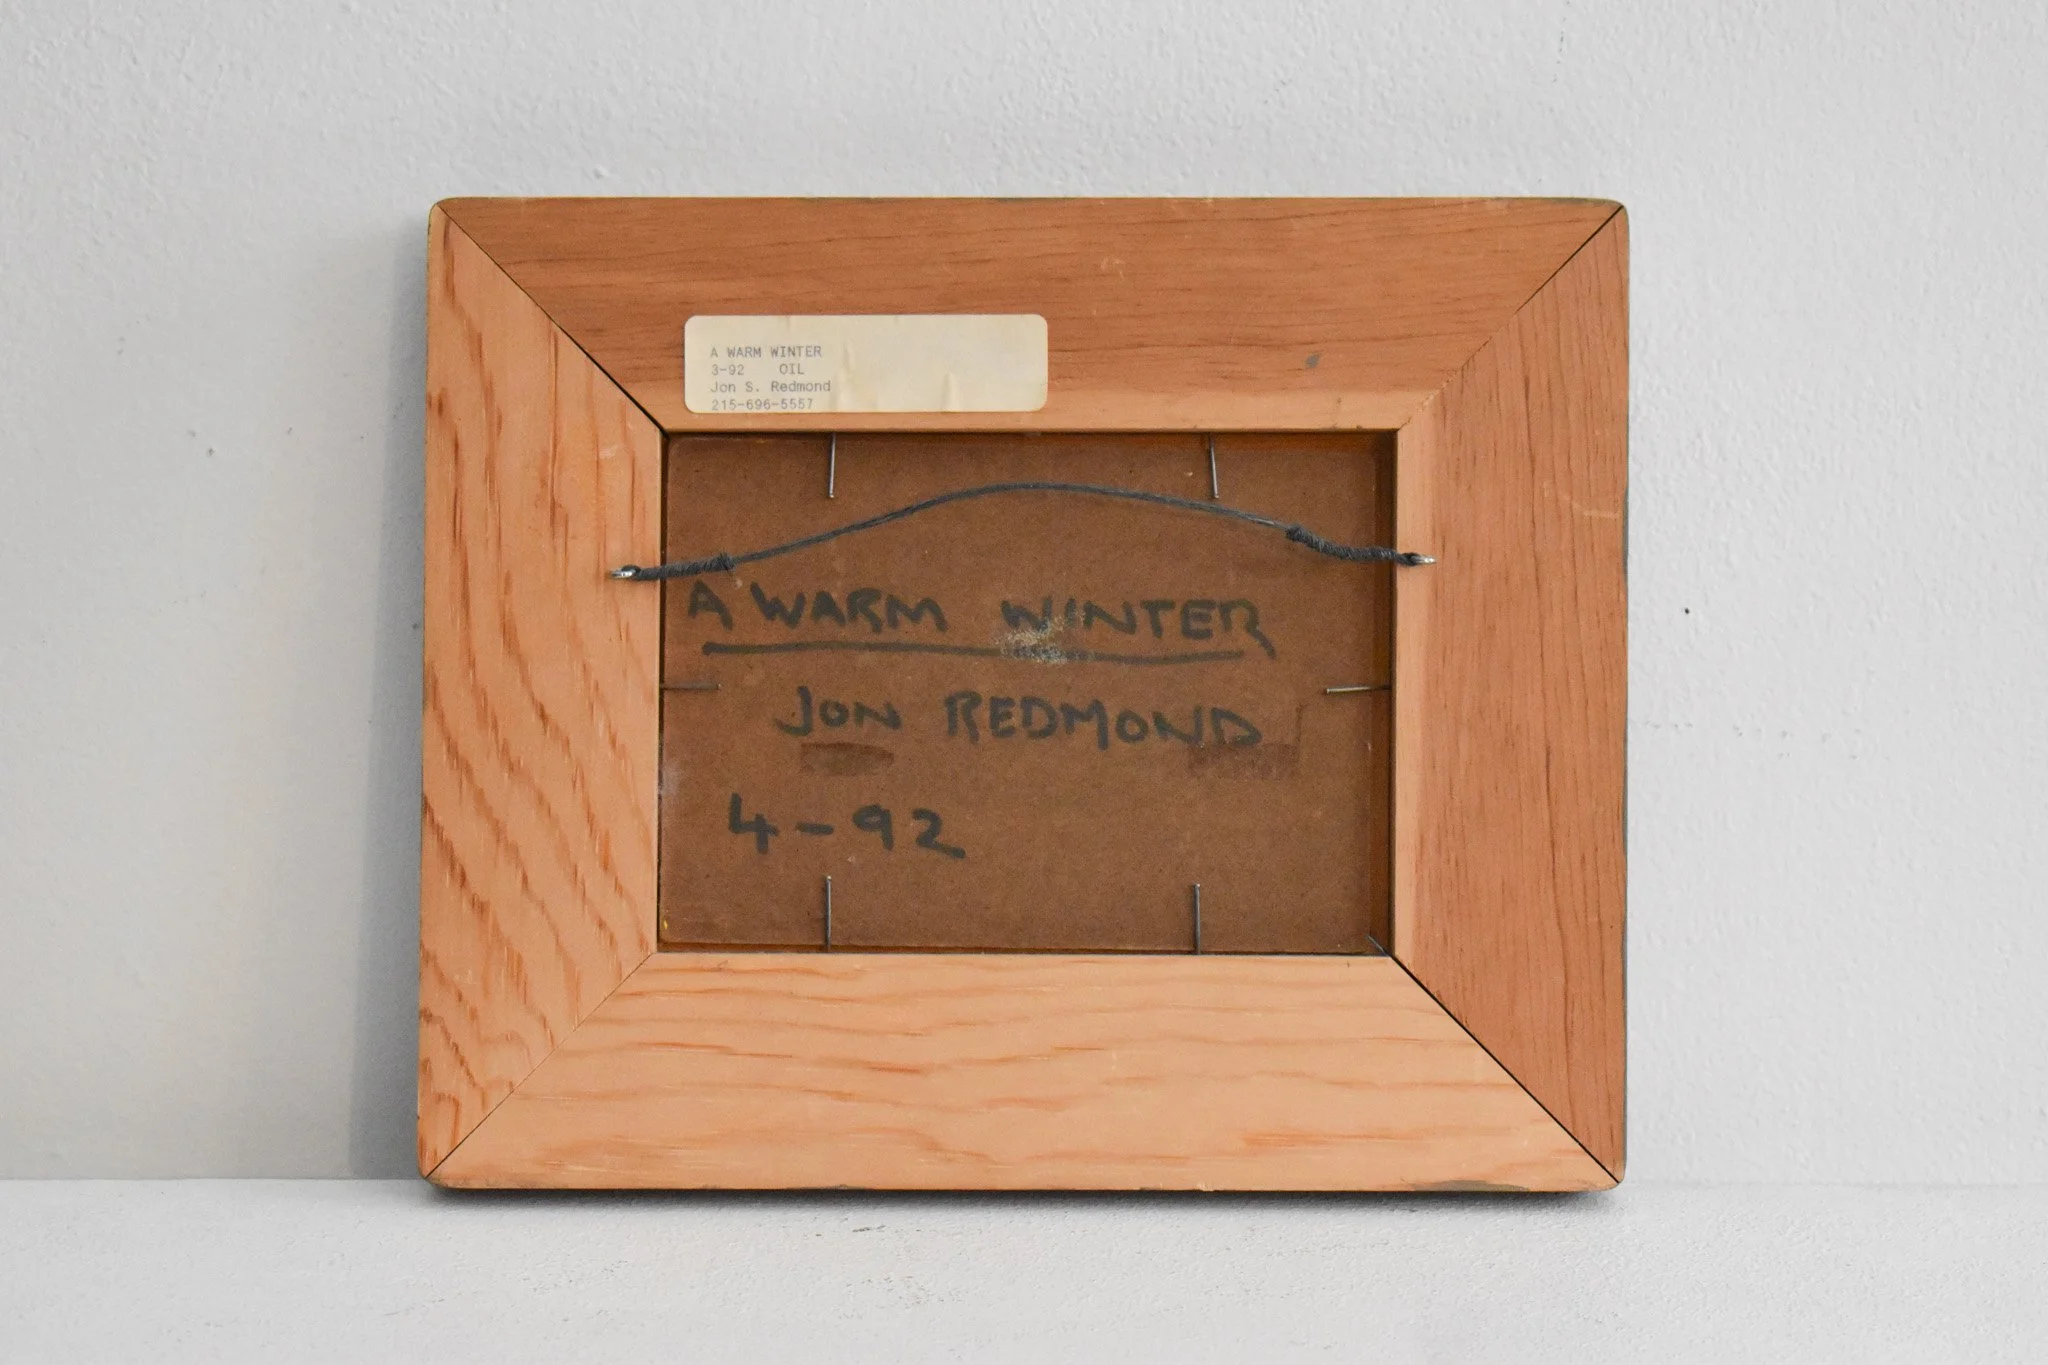 A WARM WINTER
3-92 OIL
Jon S. Redmond
215-696-5557
A WARM WINTER
JON REDMOND
4-92